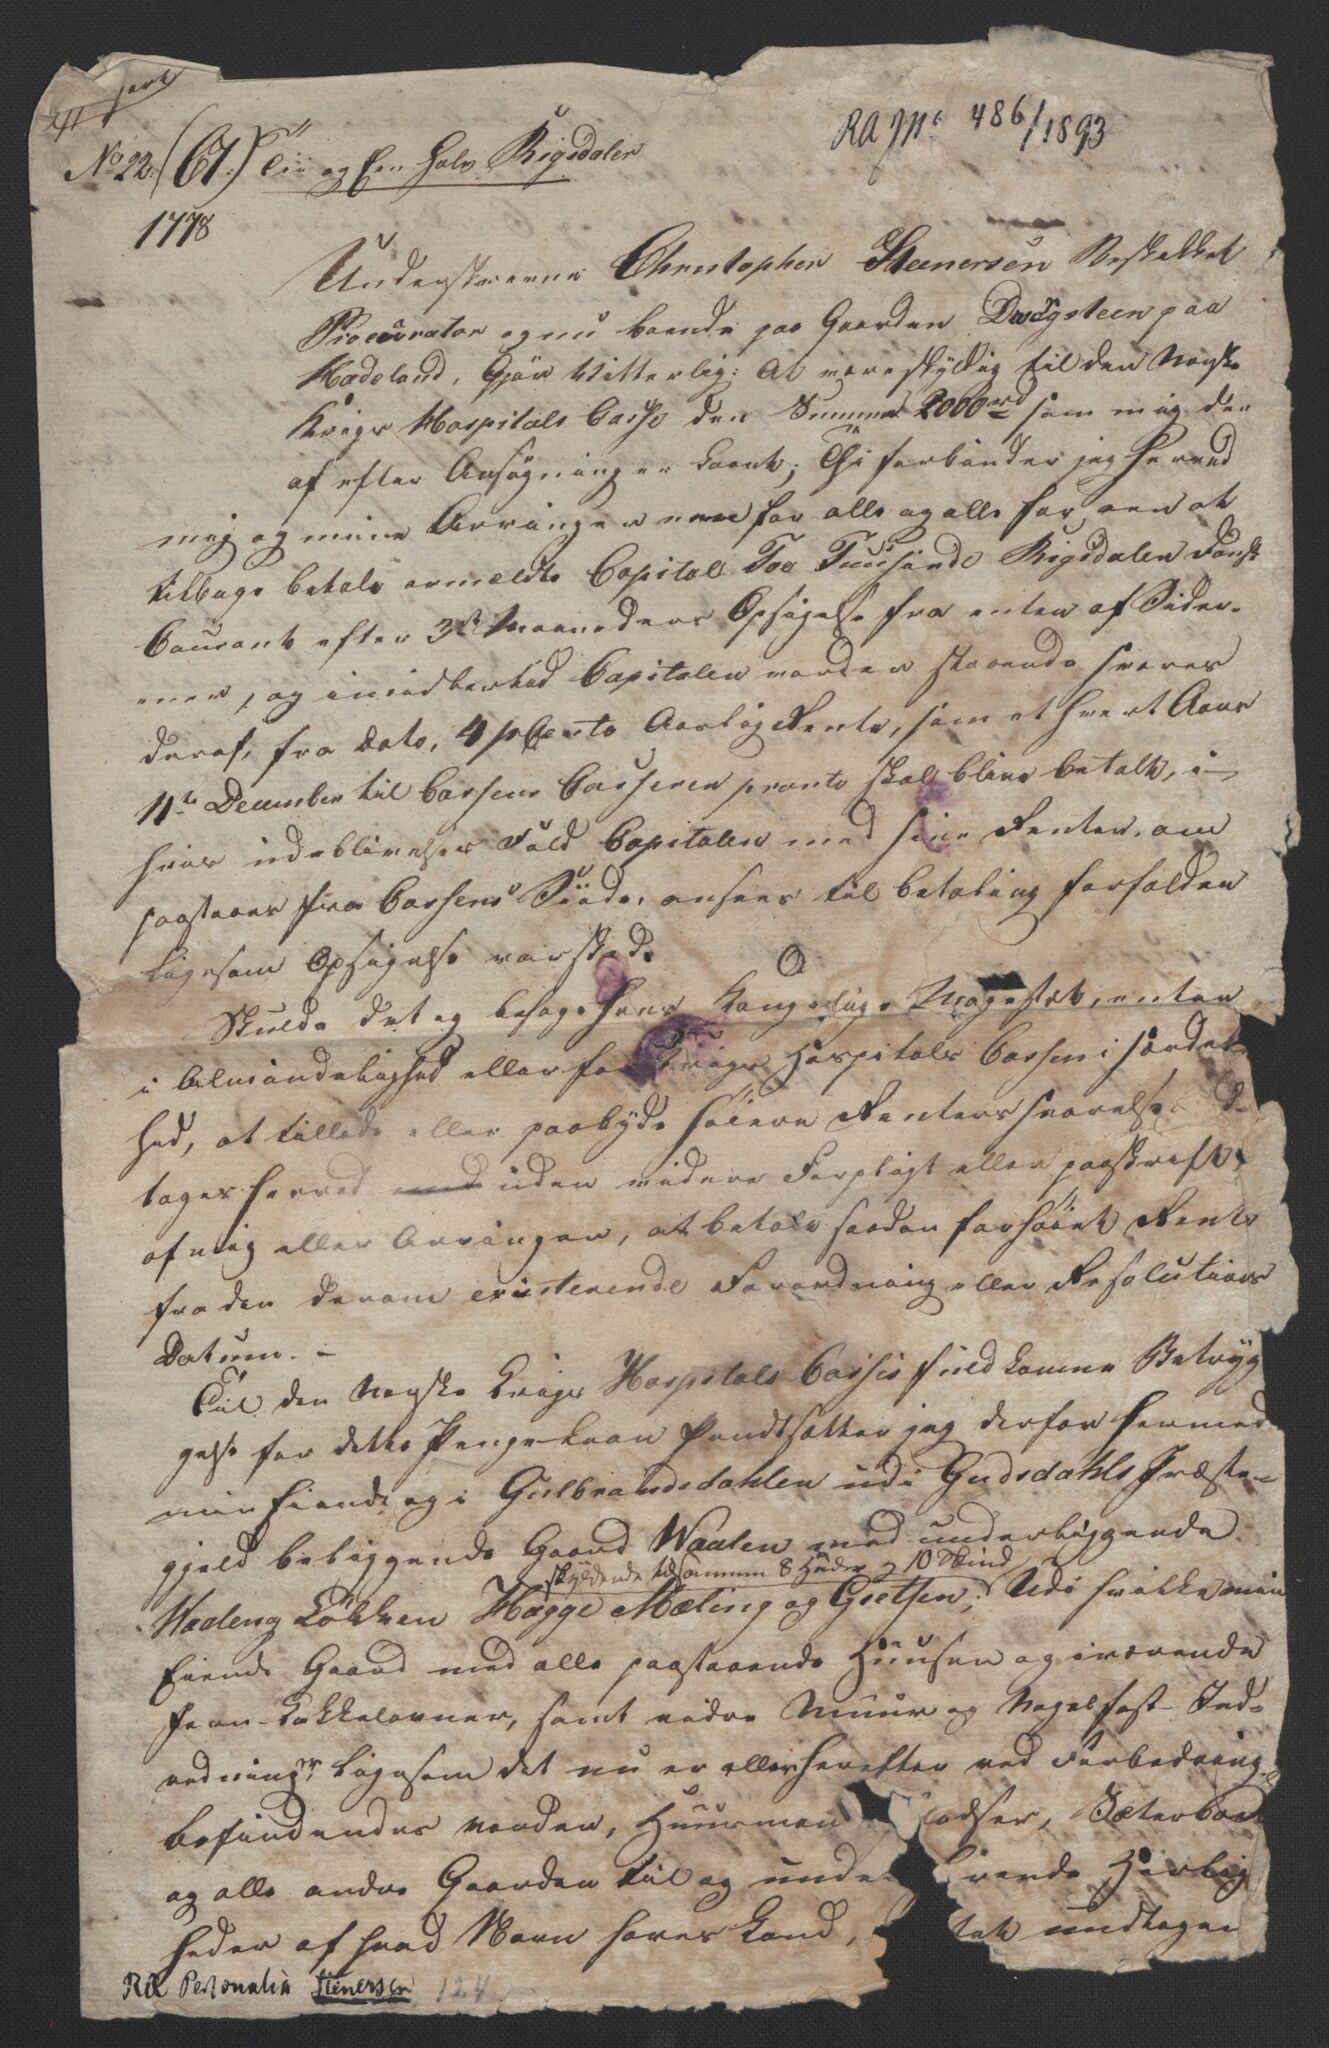 RA J No 486/1893
No 22. (67.) Tii og Een Halv Rigsdaler
1778
Underskrevne Christopher Steenersen Beskikket
Procurator og nu boende paa Gaarden Dværgsteen paa
Hadeland, Gjør Witterlig: At være skyldig til den Norske
Krigs Hospitals Casse den Summa 2000 rd som mig der
af efter Ansøgning er laant; Thi forbinder jeg herved
mig og mine Arvinger een for alle og alle for een at
tilbage betale anmeldte Capital Too Tuusinde Rigsdaler Dansk
Courant efter 3de Maaneders Opsigelse fra enten af Sider-
ener, og imidlertid Capitalen vorder staaende svares
deraf, fra Dato, 4 pCento Aarlig Rente, som et hvert Aars
11te December til Cassens Casserer promte skal blive betalt, i
hvis udeblivelses Fald Capitalen med sine Renter, om
paastaaes fra Cassens Side, ansees til betaling forfalden
ligesom Opsigelse var skeed.
Skulde det og behage Hans Kongelige Majestæt, enten
i Almindelighed eller for Krigs Hospitals Cassen i særdeles
hed, at tillade eller paabyde høiere Renters svarelse
tages herved med uden videre Forpligt eller paaskrift
af mig eller Arvinger, at betale saadan forhøiet Rente
fra den derom existerende Forordning eller Resolutions
Datum. -
Til den Norske Krigs Hospitals Casses fuldkomne Betryg
gelse for dette Penge-Laan Pandtsætter jeg derfor hermed
min Eiende og i Gulbrandsdahlen udi Gudsdahls Præste-
gjeld beliggende Gaard Waalen med underliggende
skyldende tilsammen 8 Huder og 10 Skind
Waaleng Løkken Hagge Mæling og Gretsen; Udi hvilke min
Eiende Gaard med alle paastaaende Huuser og iværende
Jern-Kakkelovner, samt videre Muur og Nagelfast Ind-
redninger, ligesom det nu er eller herefter ved Forbedring
befindendes vorder, Huusmands Pladser, Sæterboel
og alle andre Gaarden til og underhørende Herlig
heder af hvad Navn haves kand, undtagen
RA Personalia Stenersen 124